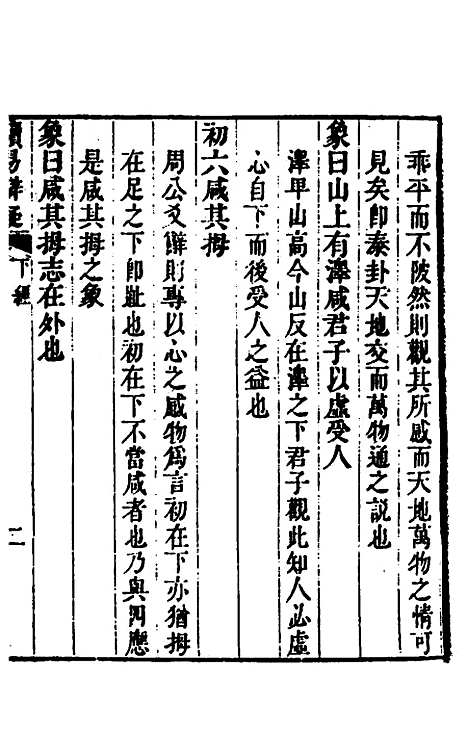 乖平而不陂然則觀其所感而天地萬物之情可
見矣卽泰卦天地交而萬物通之說也
象曰山上有澤咸君子以虛受人
澤卑山高今山反在澤之下君子觀此知人必虛
心自下而後受人之益也
初六咸其拇
周公爻辭則專以心之感物爲言初在下亦猶拇
在足之下卽趾也初在下不當咸者也乃與四應
是咸其拇之象
象曰咸其拇志在外也
讀易
下經
二